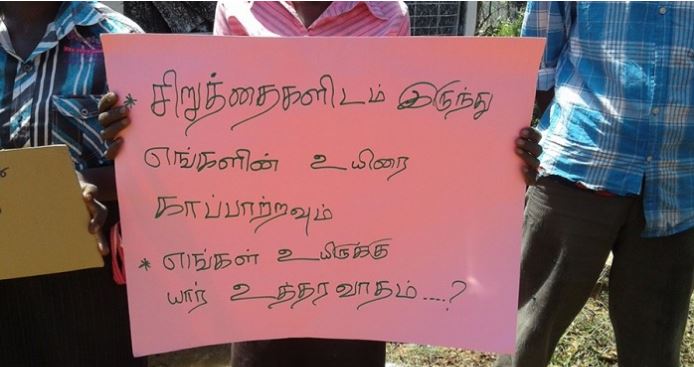 * சிறுத்தைகளிடம் இருந்து
எங்களின் உயிரை
காப்பாற்றவும்
* எங்கள் உயிருக்கு
யார் உத்தரவாதம்....?